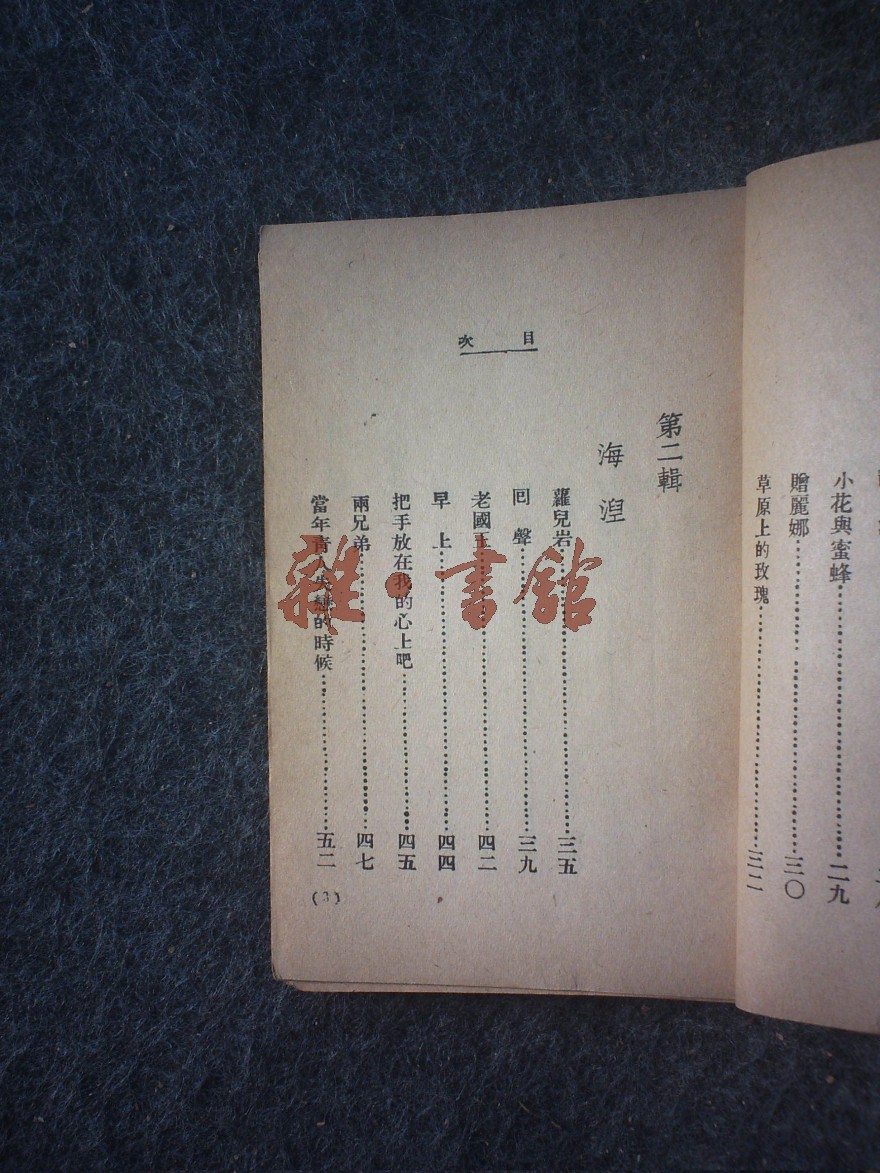 小花與蜜蜂……二九
贈麗娜……三〇
草原上的玫瑰……三二
目次
第二輯
海涅
蘿兒岩……三五
囘聲……三九
老國王……四二
早上……四四
把手放在我的心上吧……四五
兩兄弟……四七
當年青人失戀的時候……五二
(3)
雜·書館